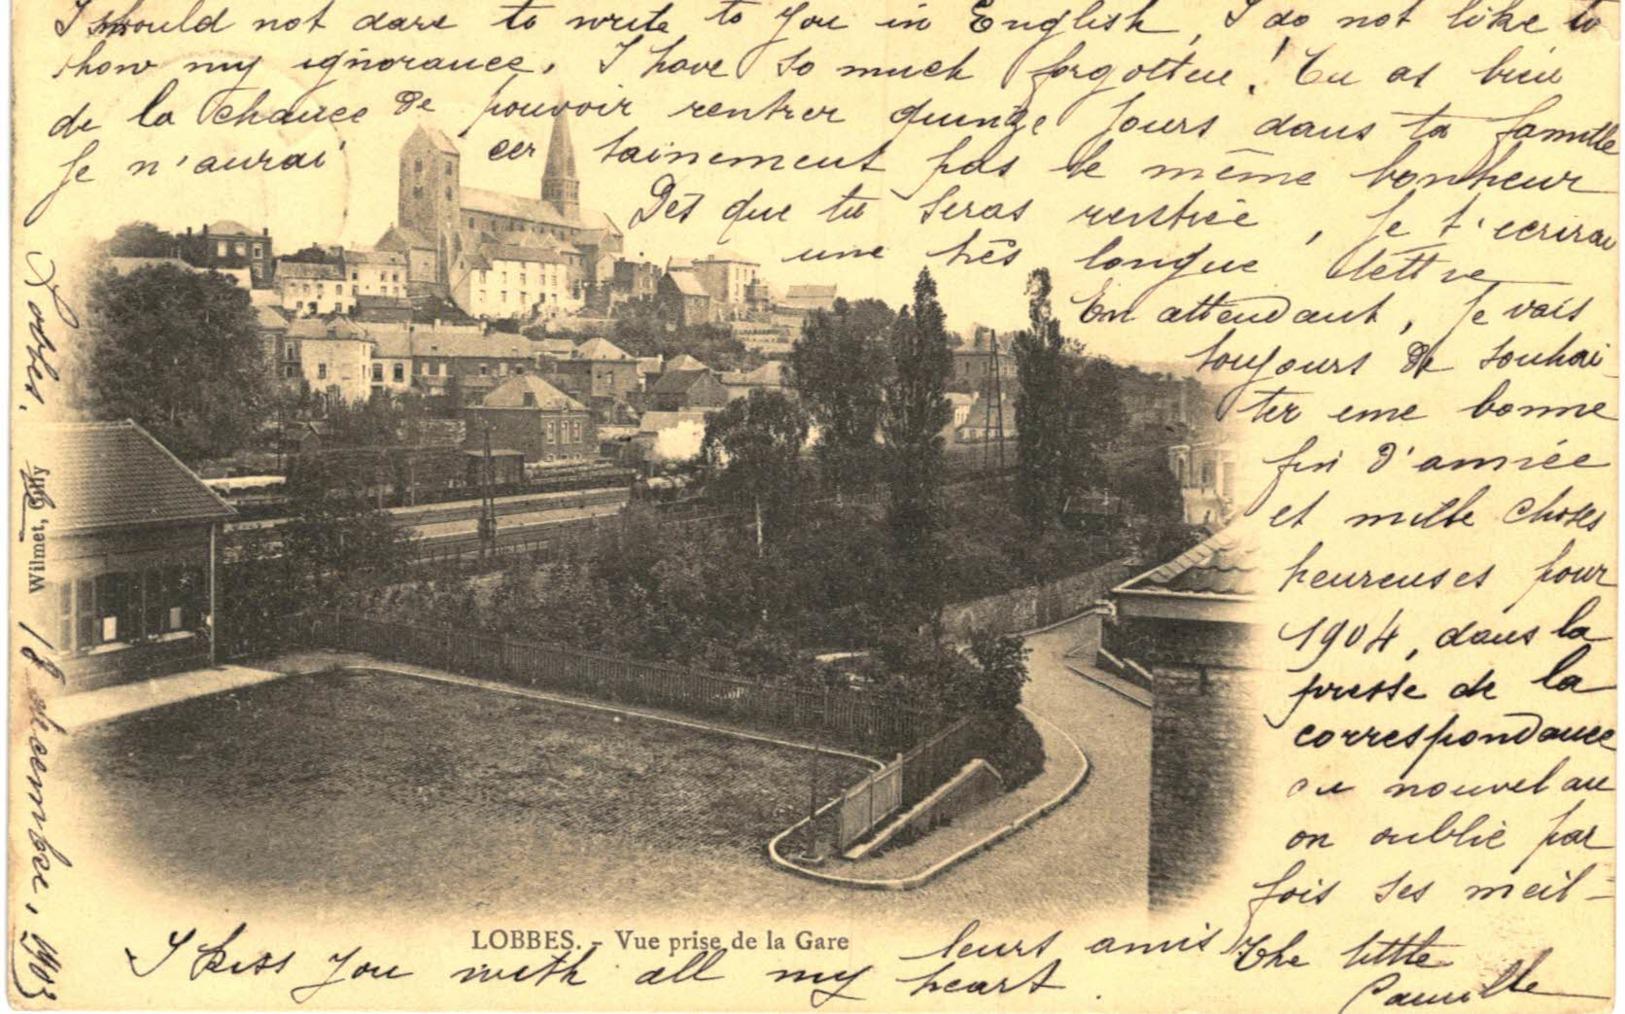 I should not dare to write to you in English, I do not like to
show my ignorance. I have so much forgotten! Tu as bien
de la chance de pouvoir rentrer quinze jours dans ta famille
Je n'aurai certainement pas le même bonheur
Dès que tu seras rentrée, je t'ecrirai
une très longue lettre
En attendant, je vais
toujours te souhai-
ter une bonne
fin d'année
et mille choses
heureuses pour
1904, dans la
presse de la
correspondance
du nouvel an
on oublie par
fois ses meil-
leurs amis
I kiss you with all my heart.
The little
Camille
Lobbes, le 18 decembre, 1903
Wilmet, Gilly
LOBBES. - Vue prise de la Gare